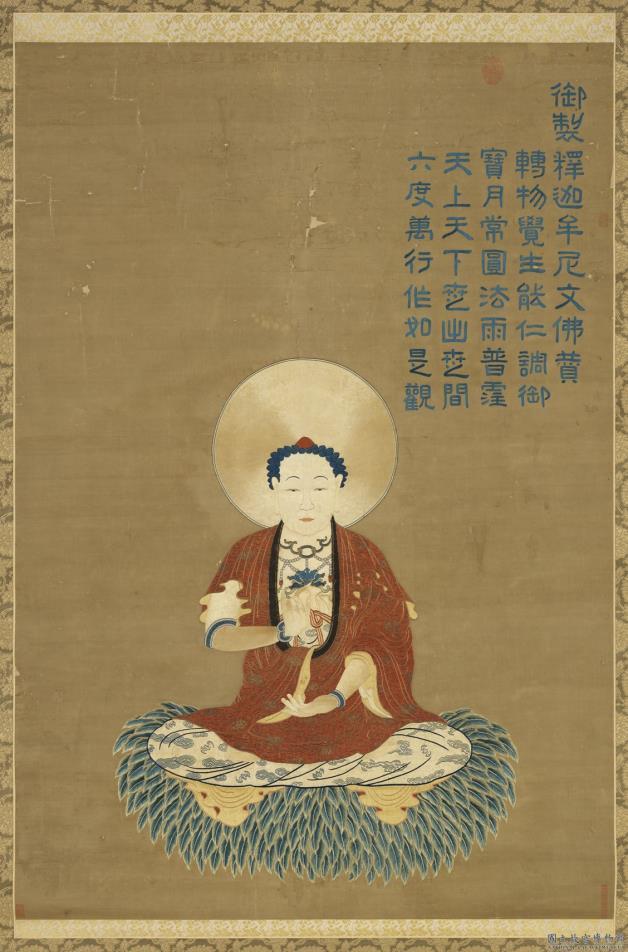 御製釋迦牟尼文佛贊
轉物覺生能仁調御
寶月常圓法雨普霔
天上天下世出世間
六度萬行作如是觀
國立故宮博物院